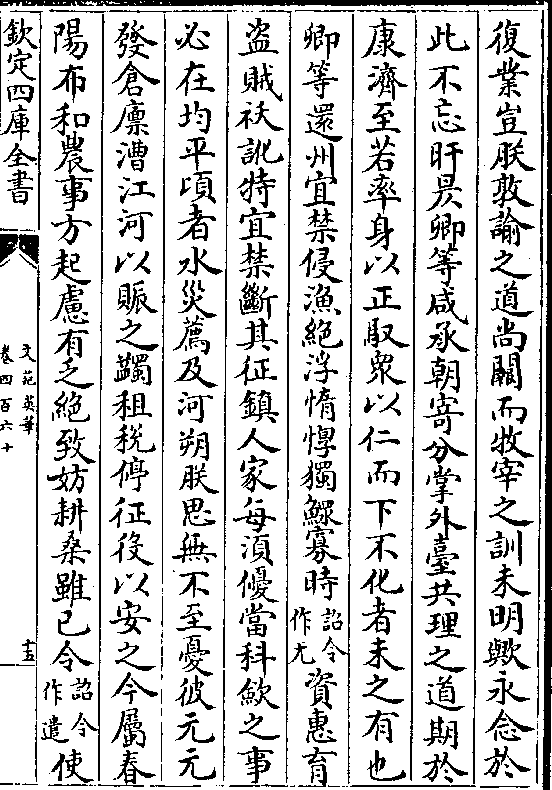 復業豈朕敦諭之道尚闕而牧宰之訓未明歟永念於
此不忘旰昃卿等咸承朝寄分掌外臺共理之道期於
康濟至若率身以正馭衆以仁而下不化者未之有也
卿等還州宜禁侵漁絶浮惰惸獨鰥寡時詔令作尤資惠育
盗賊祅訛特宜禁斷其征鎮人家每湏優當科歛之事
必在均平頃者水災薦及河朔朕思無不至憂彼元元
發倉廪漕江河以賑之蠲租税停征役以安之今屬春
陽布和農事方起慮有乏絶致妨耕桑雖已令詔令作遣使
欽定四庫全書
文苑英華
卷四百六十
十五